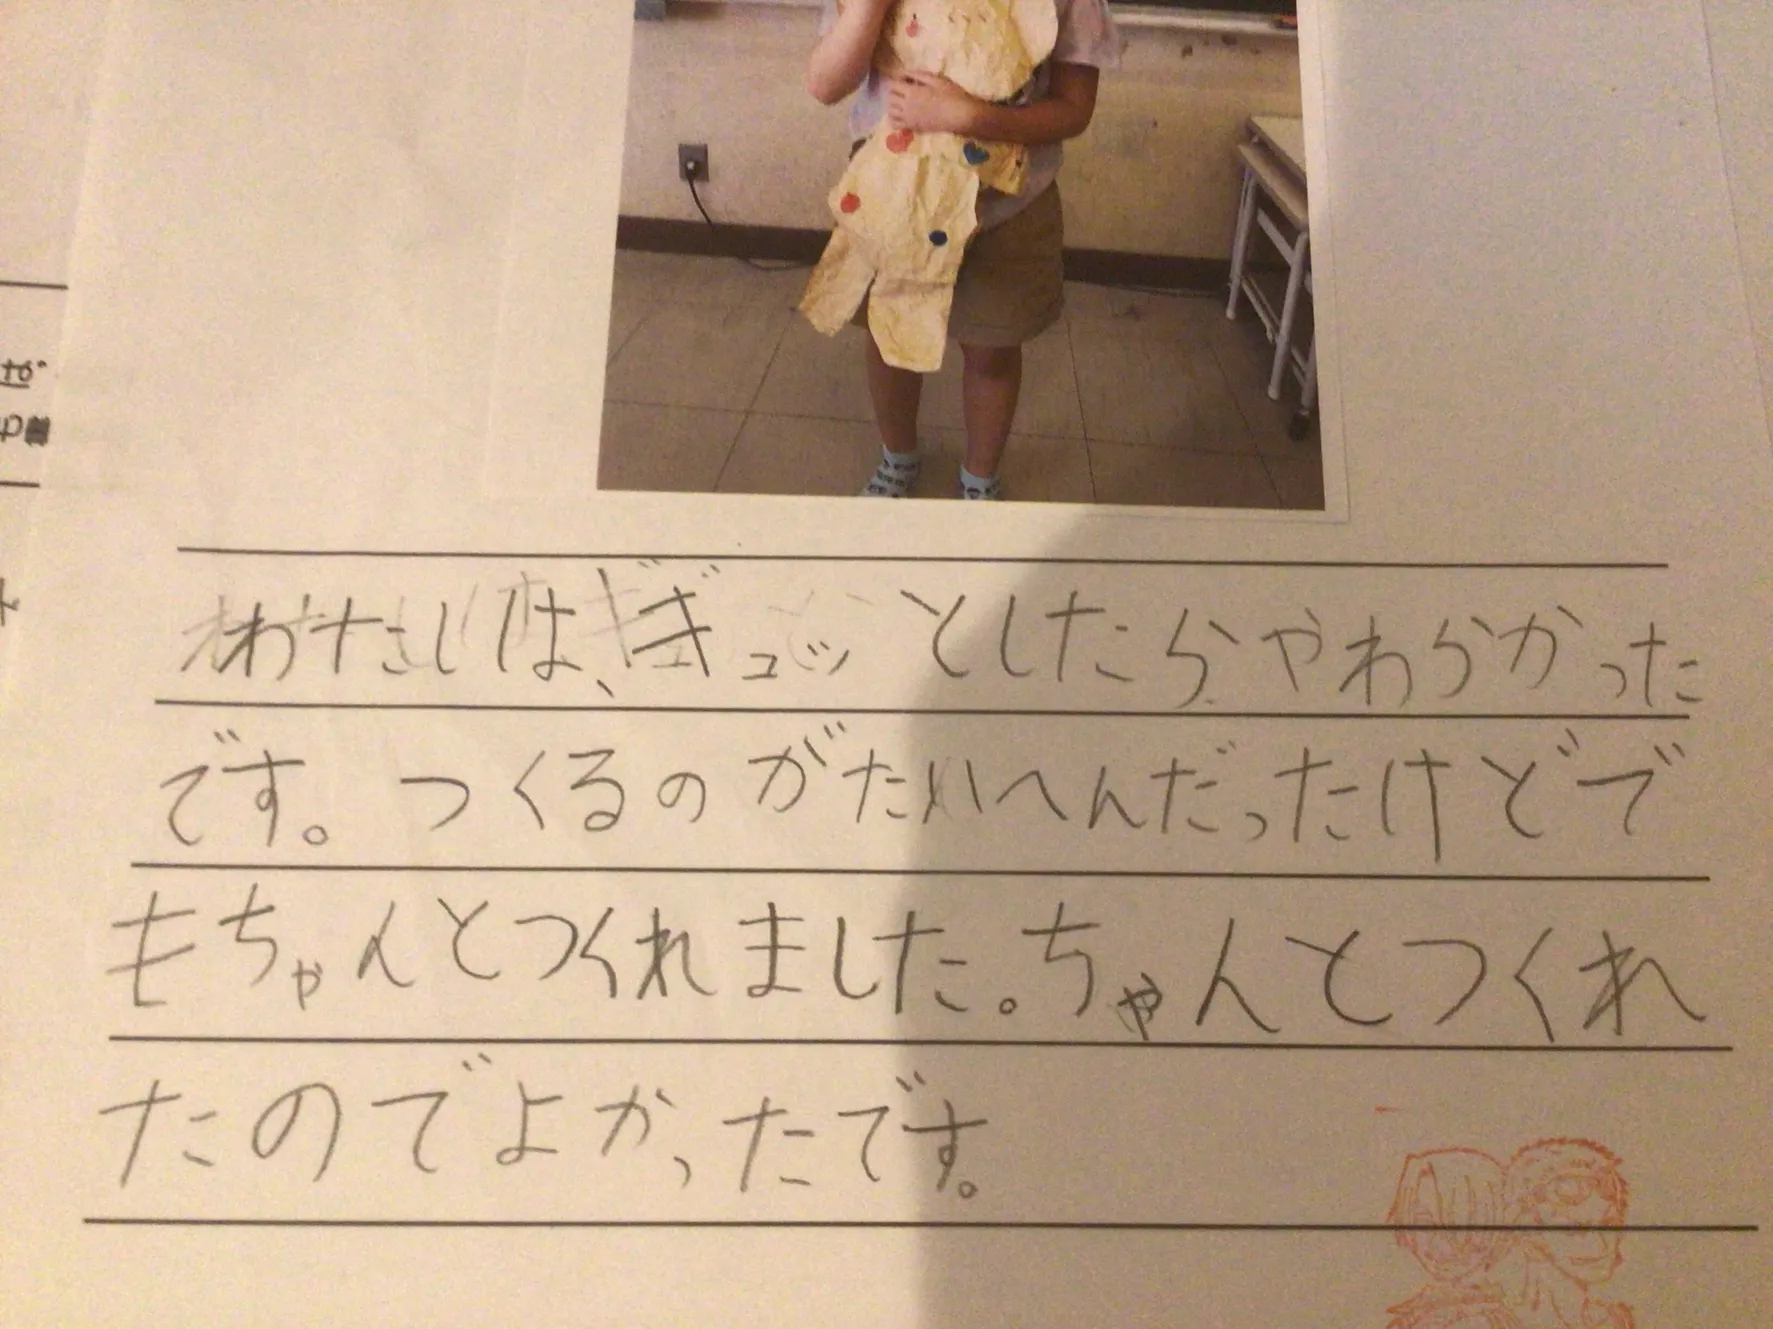 わたしは、ギュッとしたらやわらかった
です。つくるのがたいへんだったけどで
もちゃんとつくれました。ちゃんとつくれ
たのでよかったです。